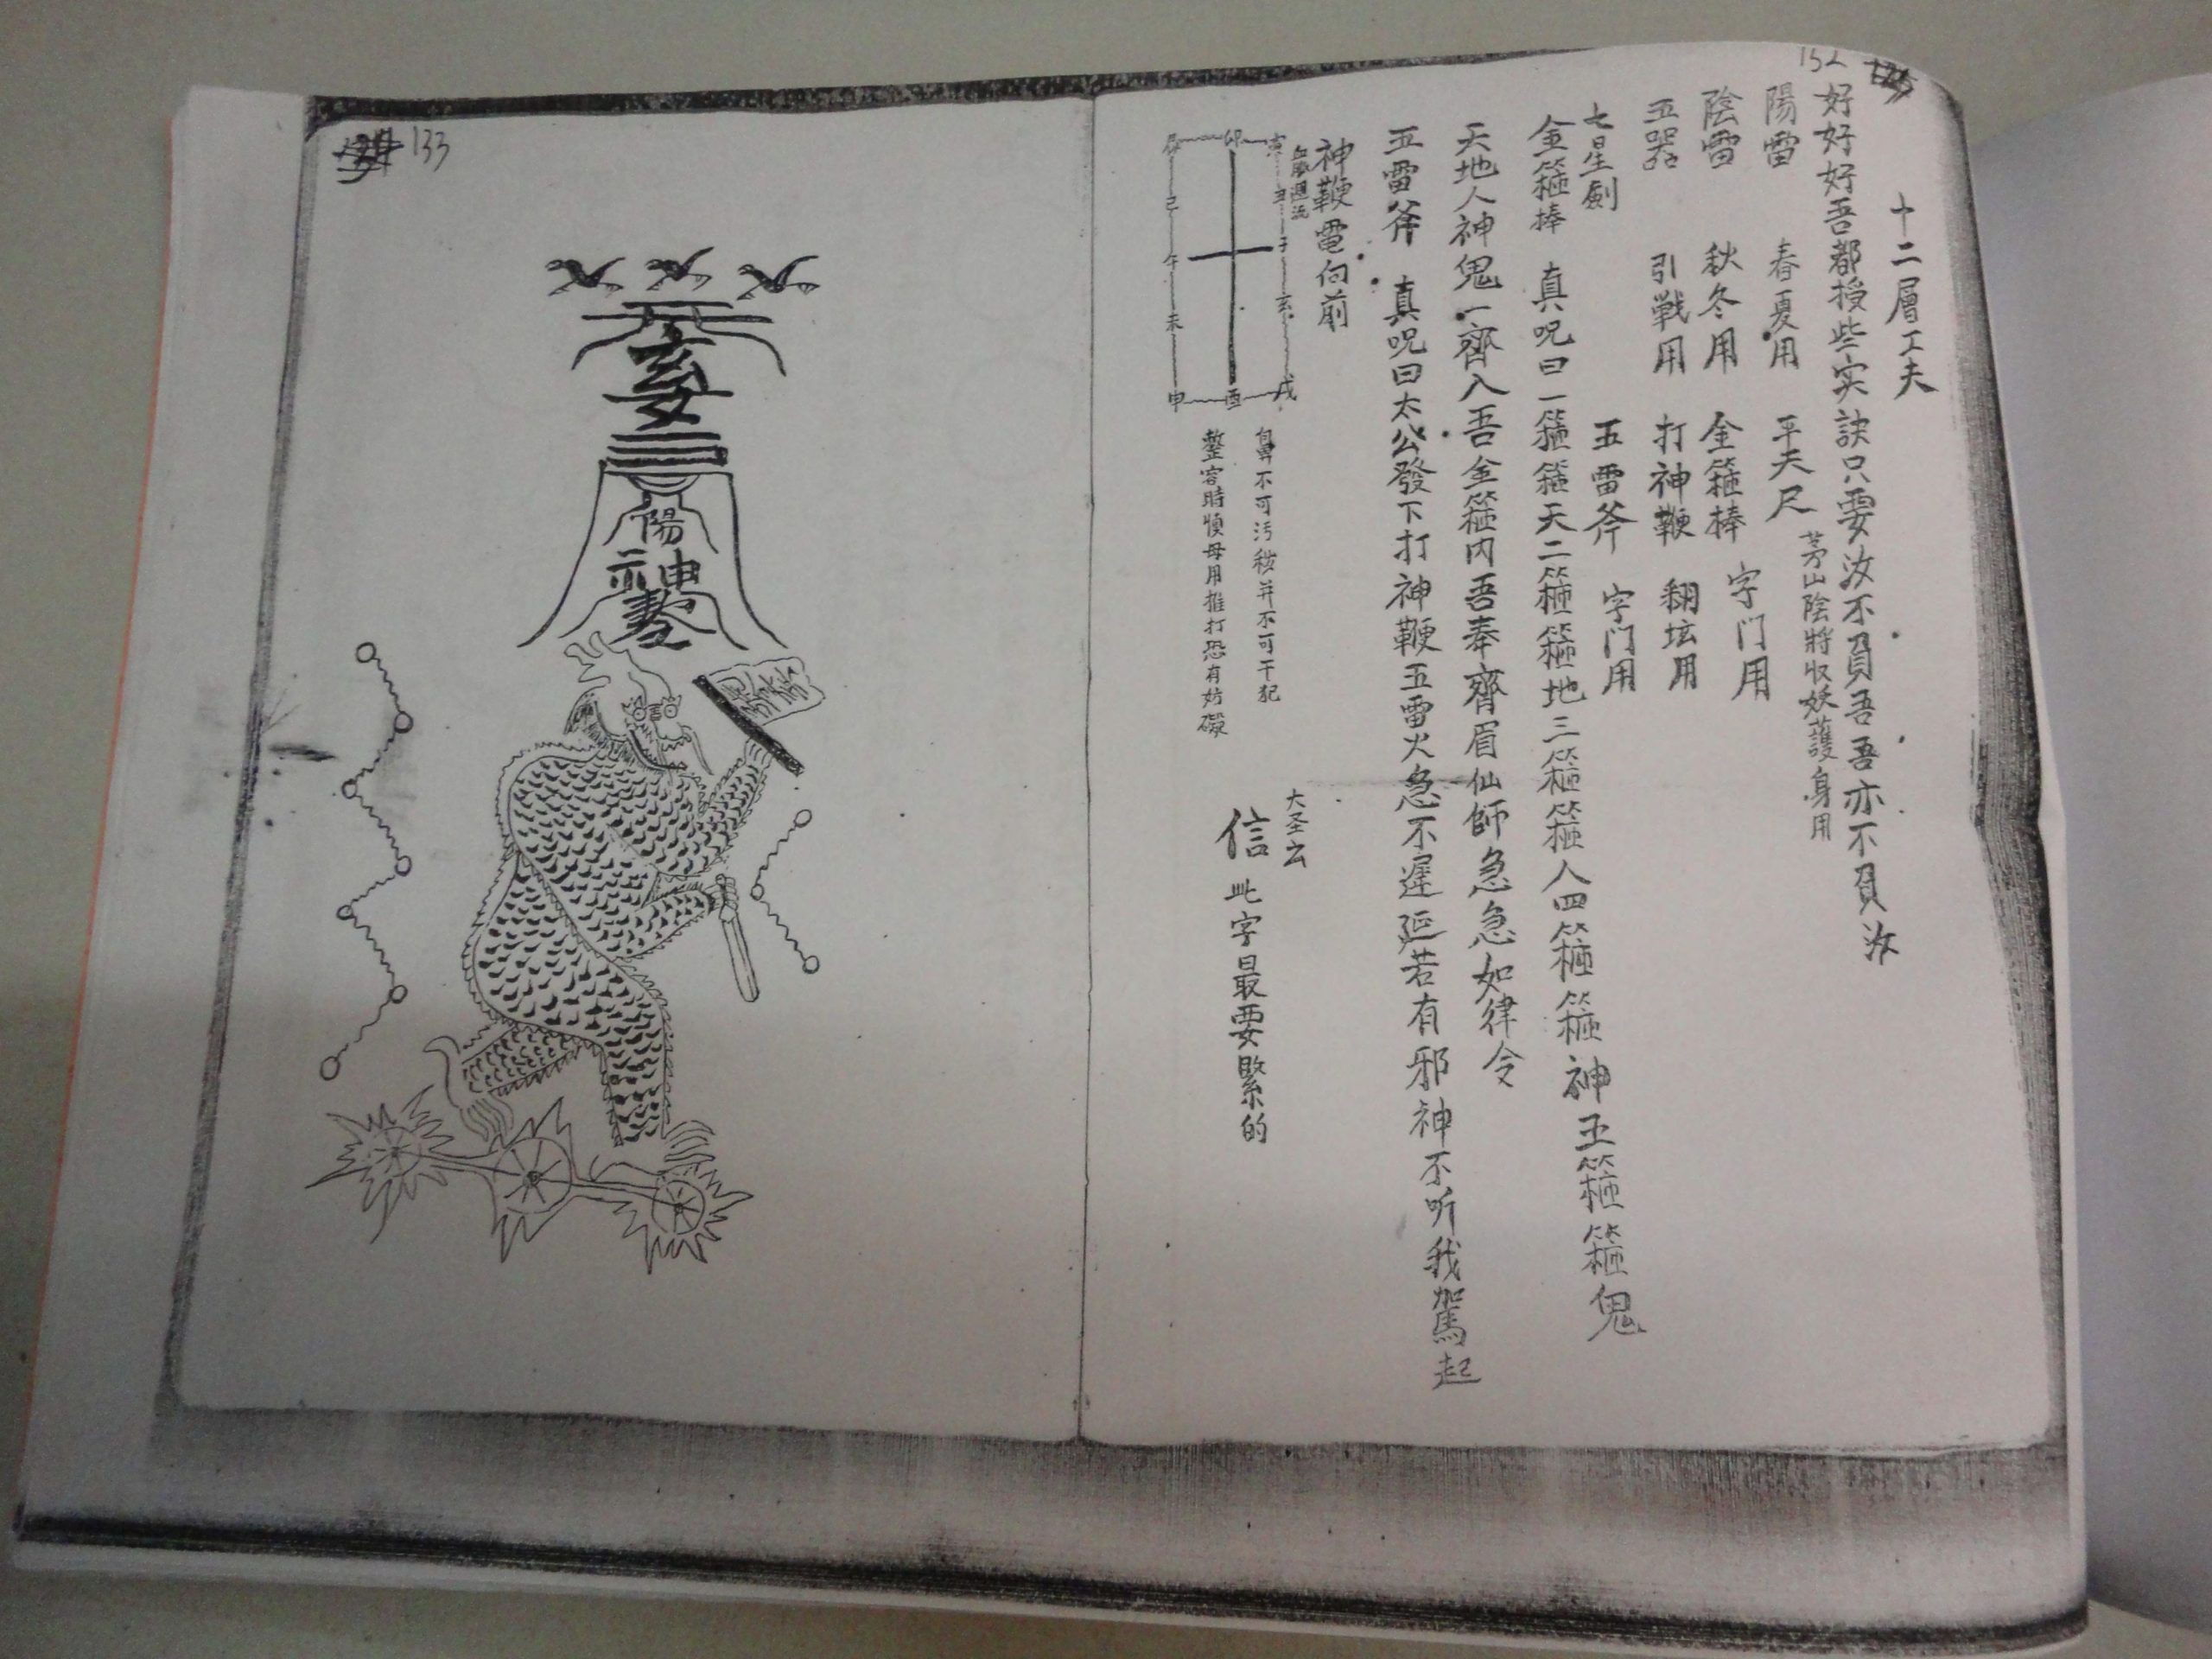 132
十二層工夫
好好好吾都授些实訣只要汝不負吾吾亦不負汝
陽雷 春夏用 平天尺 茅山陰將收妖護身用
陰雷 秋冬用 金箍棒 字门用
五器 引戦用 打神鞭 翻坛用
七星劍 五雷斧 字门用
金箍棒 真呪曰一箍箍天二箍箍地三箍箍人四箍箍神五箍箍鬼
天地人神鬼一齊入吾金箍内吾奉齊眉仙師急急如律令
五雷斧 真呪曰太公發下打神鞭五雷火急不遲延若有邪神不听我駕起
神鞭電向前
寅 卯 辰
丑 巳
子 午
亥 未
戌 酉 申
鼻不可污秽并不可干犯
整容時慎毋用推打恐有妨礙
大圣云
信 此字最要緊的
133
陽
神